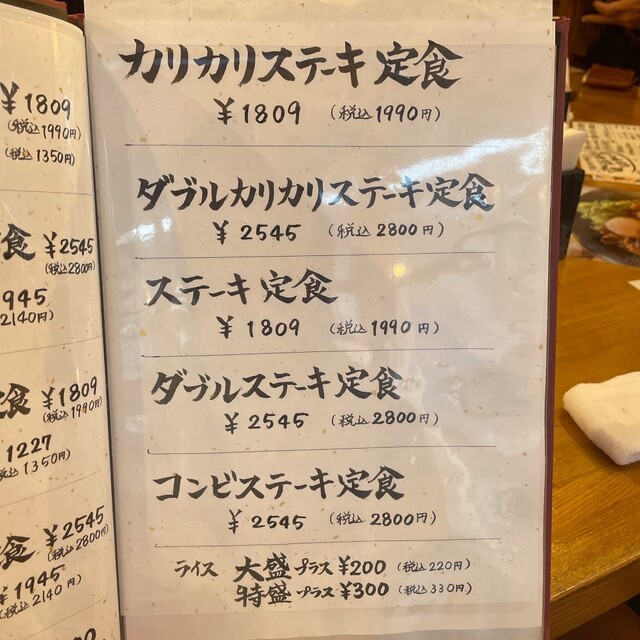 ¥1809
(税込1990円)
(税込1350円)
食 ¥2545
(税込2800円)
945
2140円)
食 ¥1809
(税込1990円)
1227
1350円)
食 ¥2545
(税込2800円)
¥1945
(税込2140円)
カリカリステーキ定食
¥1809 (税込1990円)
ダブルカリカリステーキ定食
¥2545 (税込2800円)
ステーキ定食
¥1809 (税込1990円)
ダブルステーキ定食
¥2545 (税込2800円)
コンビステーキ定食
¥2545 (税込2800円)
ライス 大盛プラス¥200 (税込220円)
特盛プラス¥300 (税込330円)